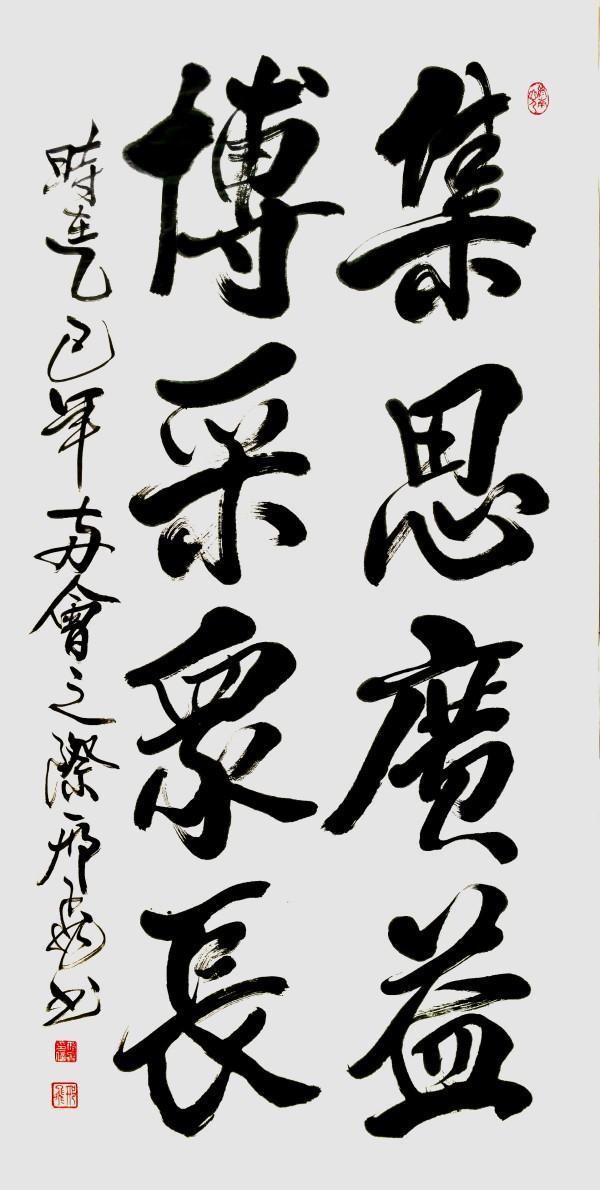 集思廣益
博采眾長
時在乙巳年兩會之際邢
書